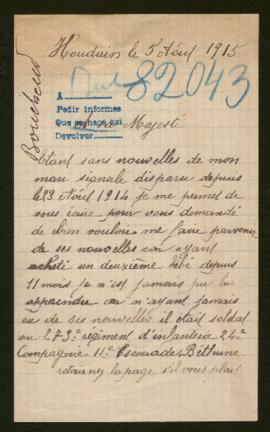 Houdain le 5 Aôut 1915
82043
A
Pedir informes
Que se haga así
Devolver
Majesté
Etant sans nouvelles de mon
mari signale disparu depuis
le 29 Aôut 1914 je me permet de
vous écrire pour vous demande
de bien vouloir me faire parvenir
de ses nouvelles car ayant
acheté un deuxième bébé depuis
11 mois je n'est jamais pu lui
apprendre car n'ayant jamais
eu de ses nouvelles il était soldat
au 273e régiment d'infanterie 24e
Compagnie 11e Escouade Béthune
retournez la page s'il vous plait